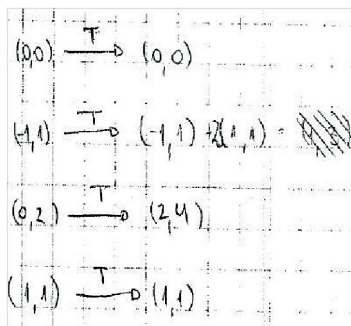 (0,0) T→ (0,0)
(-1,1) T→ (-1,1) + 2(1,1) =
(0,2) T→ (2,4)
(1,1) T→ (1,1)